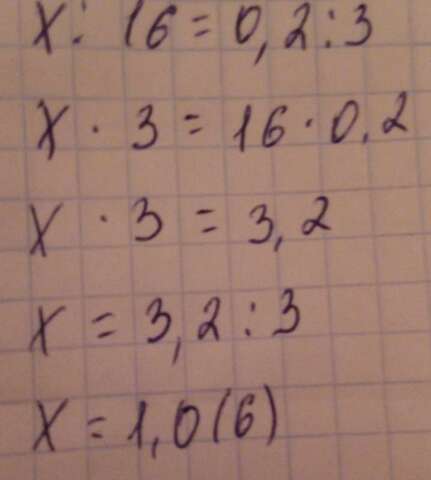 X : 16 = 0,2 : 3
X · 3 = 16 · 0,2
X · 3 = 3,2
X = 3,2 : 3
X = 1,0(6)